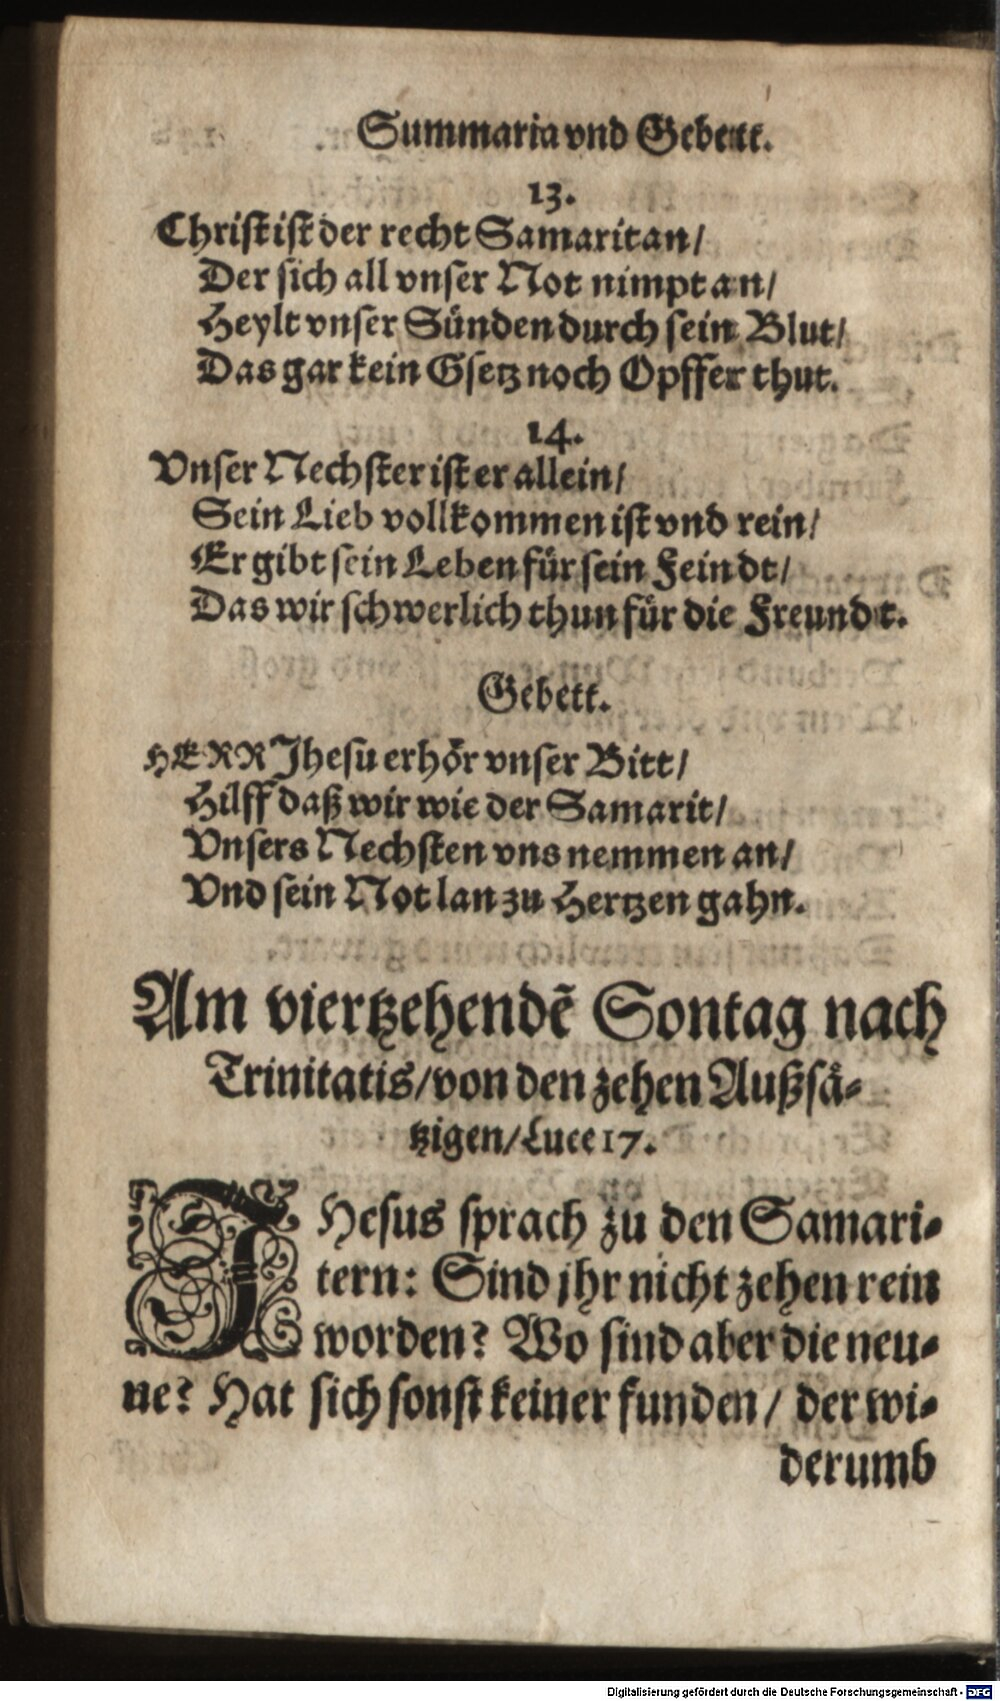 Summaria vnd Gebett.
13.
Christ ist der recht Samaritan/
Der sich all vnser Not nimpt an/
Heylt vnser Sünden durch sein Blut/
Das gar kein Gsetz noch Opffer thut.
14.
Vnser Nechster ist er allein/
Sein Lieb vollkommen ist vnd rein/
Er gibt sein Leben für sein Feindt/
Das wir schwerlich thun für die Freundt.
Gebett.
HERR Jhesu erhör vnser Bitt/
Hilff daß wir wie der Samarit/
Vnsers Nechsten vns nemmen an/
Vnd sein Not lan zu Hertzen gahn.
Am viertzehendẽ Sontag nach
Trinitatis/ von den zehen Außsä-
tzigen/ Luce 17.
JHesus sprach zu den Samari-
tern: Sind jhr nicht zehen rein
worden? Wo sind aber die neu-
ne? Hat sich sonst keiner funden/ der wi-
derumb
Digitalisierung gefördert durch die Deutsche Forschungsgemeinschaft - DFG